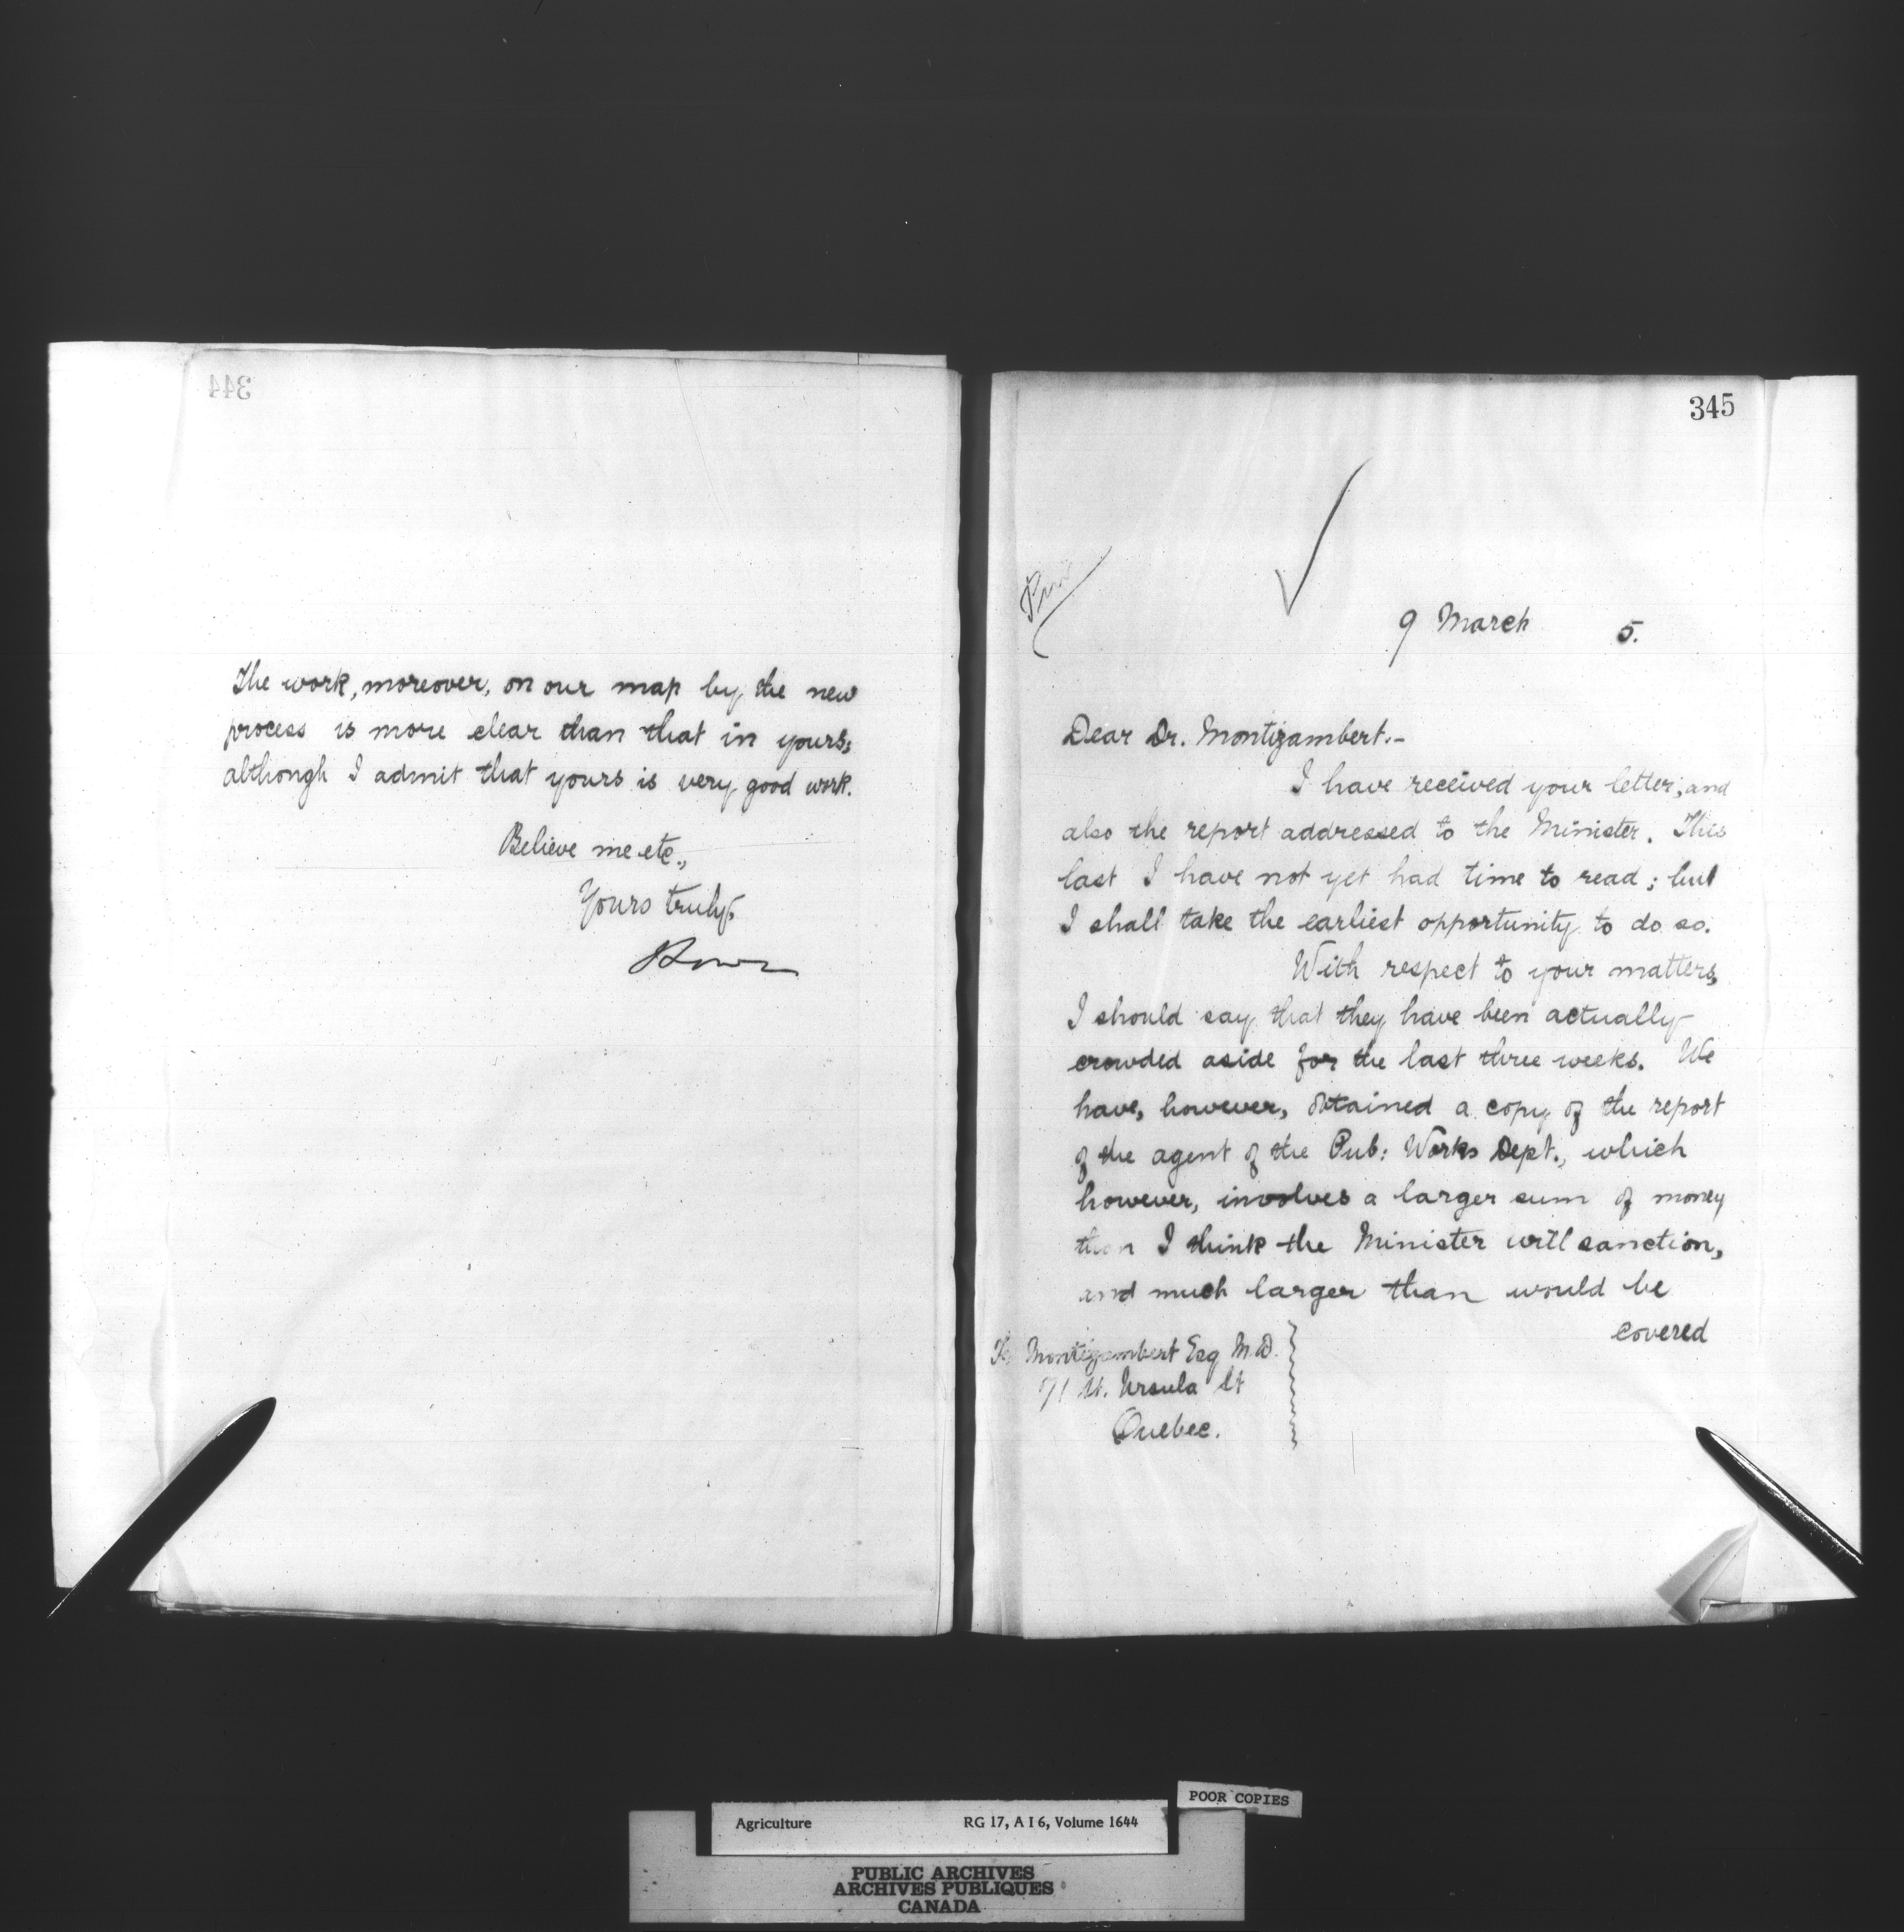 344
The work, moreover, on our map by the new
process is more clear than that in yours;
although I admit that yours is very good work.
Believe me etc.,
Yours truly,
345
9 March 5.
Dear Dr. Montizambert.-
I have received your letter, and
also the report addressed to the Minister. This
last I have not yet had time to read; but
I shall take the earliest opportunity to do so.
With respect to your matters,
I should say that they have been actually
crowded aside for the last three weeks. We
have, however, obtained a copy of the report
of the agent of the Pub: Works Dept., which
however, involves a larger sum of money
than I think the Minister will sanction,
and much larger than would be
covered
Montizambert Esq M.D.
71 St. Ursula St
Quebec.
POOR COPIES
Agriculture RG 17, A I 6, Volume 1644
PUBLIC ARCHIVES
ARCHIVES PUBLIQUES
CANADA